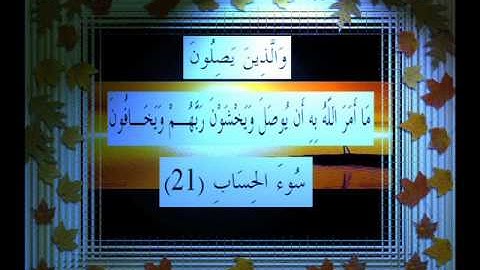 وَالَّذِينَ يَصِلُونَ
مَا أَمَرَ اللَّهُ بِهِ أَن يُوصَلَ وَيَخْشَوْنَ رَبَّهُمْ وَيَخَافُونَ
سُوءَ الحِسَابِ (21)